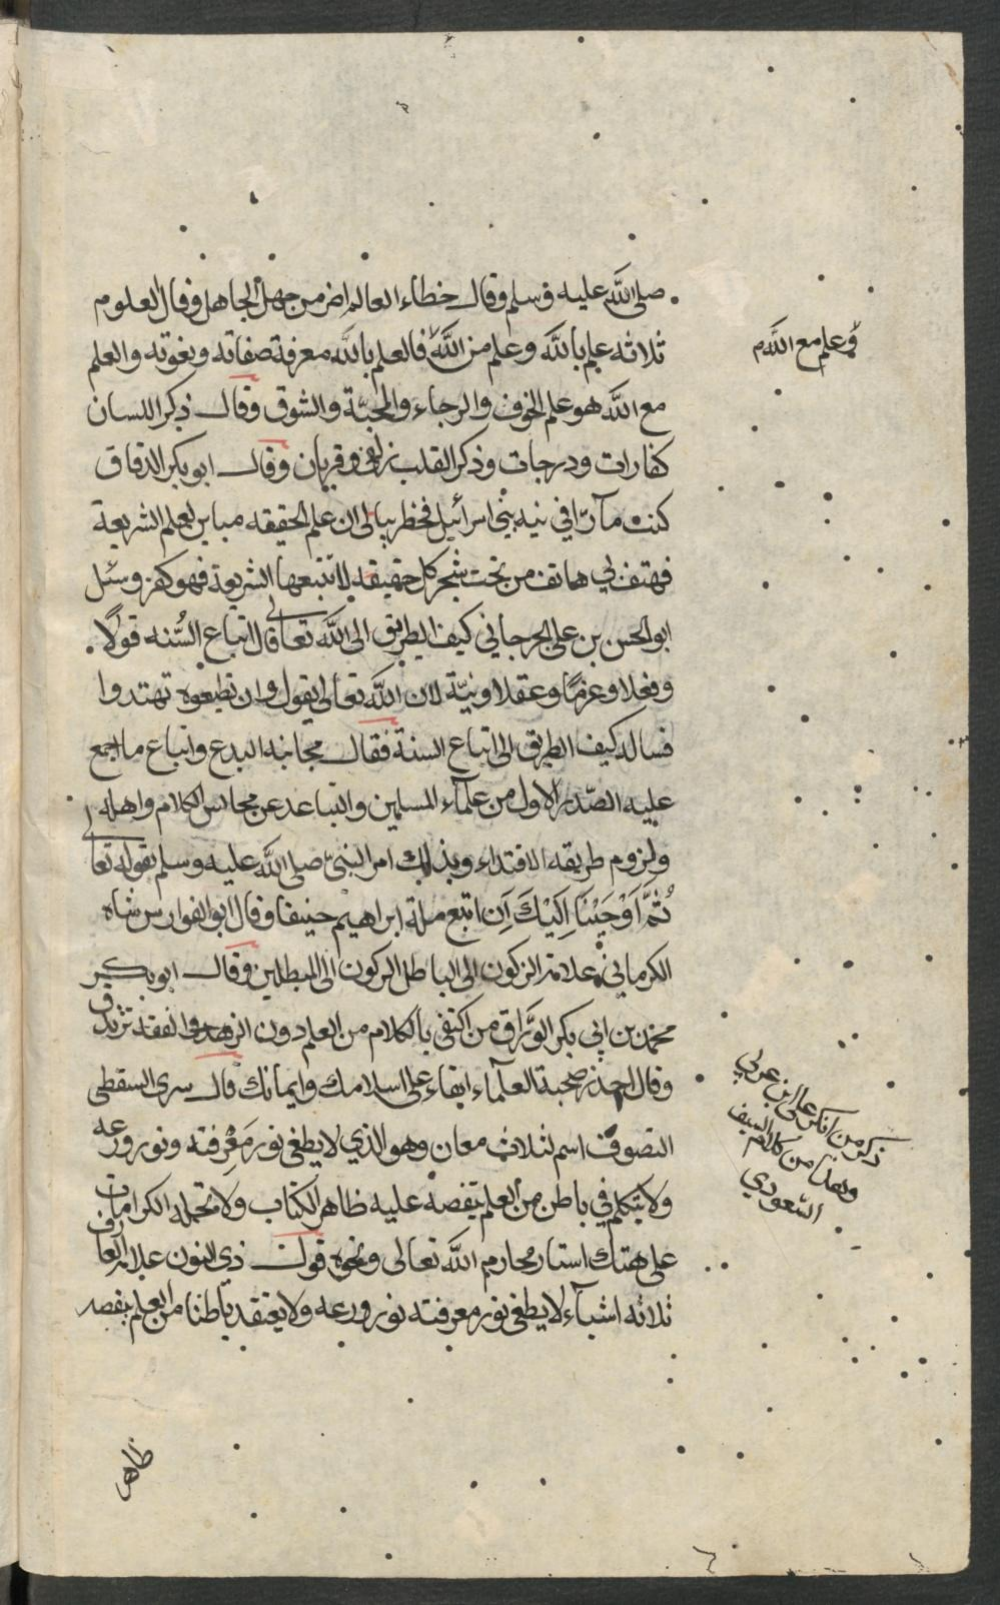 صلى الله عليه وسلم وقال خطاء العالم اضر من جهل الجاهل وقال العلوم
ثلاثه علم بالله وعلم من الله فالعلم بالله معرفة صفاته ونعوته والعلم
وعلم مع الله م
مع الله هو علم الخوف والرجاء والمحبّة والشوق وقال ذكر اللسان
كفارات ودرجات وذكر القلب زلفى وقربان وقال ابو بكر الدقاق
كنت مآرّا في تيه بنى اسرائيل فخطر ببالى ان علم الحقيقه مباين لعلم الشريعة
فهتف لي هاتف من تحت شجر كل حقيقه لا تتبعها الشريعة فهو كفر وسئل
ابو الحسن بن على الجرجاني كيف الطريق الى الله تعالى قال اتباع السُّنه قولًا
وفعلا وعزمًا وعقلا ونيّة لان الله تعالى يقول وان تطيعوه تهتدوا
فساله كيف الطريق الى اتباع السنة فقال مجانبه البدع واتباع ما اجمع
عليه الصّدر الاول من علمآء المسلمين والتباعد عن مجالس الكلام واهله
ولزوم طريقه الاقتداء وبذلك امر النبىّ صلى الله عليه وسلم بقوله تعالى
ثُمَّ اَوْحَيْنَا اِلَيْكَ اَنِ اتبع ملة ابراهيم حنيفا وقال ابو الفوارس شاه
الكرماني علامة الركون الى الباطل الركون الى المبطلين وقال ابو بكر
محمد بن ابي بكر الورّاق من اكتفى بالكلام من العلم دون الزهد والفقه تزندق
وقال احذر صحبة العلمآء ابقاء على اسلامك وايمانك قال سرى السقطى
التصوف اسم لثلاث معان وهو الذي لا يطفى نور مَعْرِفته ونور ورعه
ولا يتكلم في باطن من العلم ينقصه عليه ظاهر الكتاب ولا تحمله الكرامات
على هتك استار محارم الله تعالى ونحوه قول ذى النون علامة العارف
ثلاثه اشيآء لا يطفى نور معرفته نور ورعه ولا يعتقد باطنا من العلم ينقصه
ذكر من انكر على ابن عربي
وهذا من كلام السيف
السعودي
ظاهر